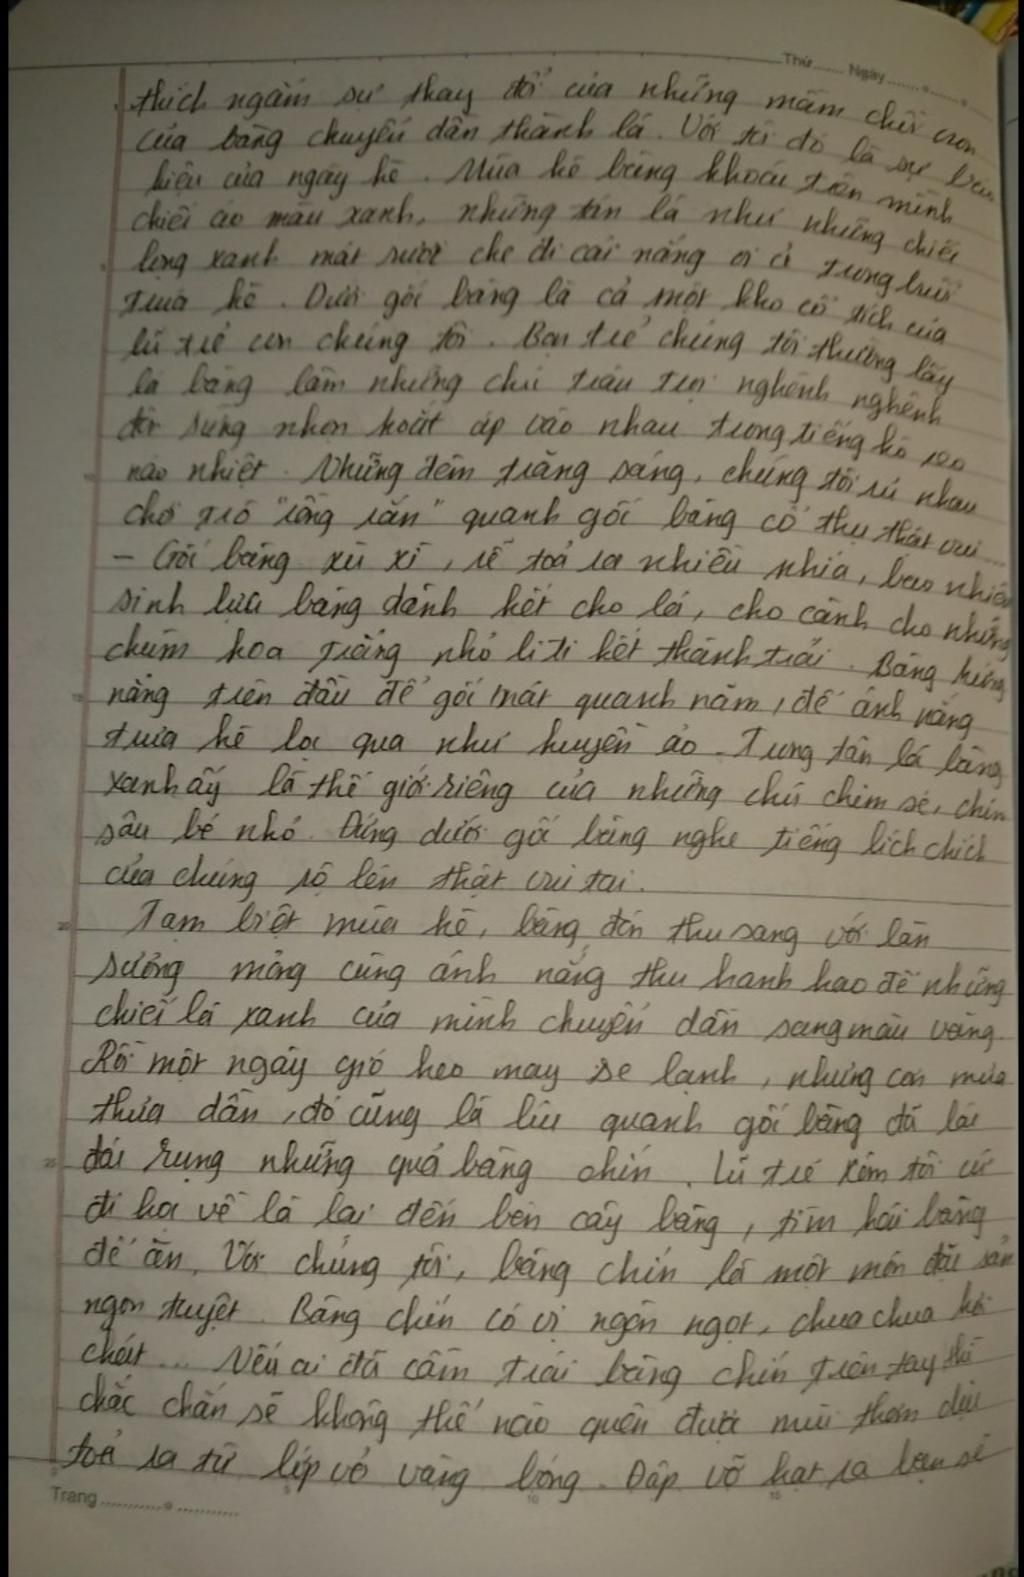 Thứ...... Ngày...........
thích ngắm sự thay đổi của những mầm chồi non
của bàng chuyển dần thành lá. Với tôi đó là sự báo
hiệu của ngày hè. Mùa hè bàng khoác trên mình
chiếc áo màu xanh, những tán lá như những chiếc
lọng xanh mát rượi che đi cái nắng oi ả trong buổi
trưa hè. Dưới gốc bàng là cả một kho cổ tích của
lũ trẻ con chúng tôi. Bọn trẻ chúng tôi thường lấy
lá bàng làm những chú trâu chọi nghênh nghênh
đôi sừng nhọn hoắt áp vào nhau trong tiếng hò reo
náo nhiệt. Những đêm trăng sáng, chúng tôi rủ nhau
chơi trò "rồng rắn" quanh gốc bàng cổ thụ thật vui
- Gốc bàng xù xì, rễ toả ra nhiều phía, bao nhiêu
sinh lực bàng dành hết cho lá, cho cành cho những
chùm hoa trắng nhỏ li ti kết thành trái. Bàng hứng
nắng trên đầu để gốc mát quanh năm, để ánh nắng
trưa hè lọc qua như huyền ảo. Trong tán lá bàng
xanh ấy là thế giới riêng của những chú chim sẻ, chim
sâu bé nhỏ. Đứng dưới gốc bàng nghe tiếng lích chích
của chúng rộ lên thật vui tai.
Tạm biệt mùa hè, bàng đón thu sang với làn
sương mỏng cùng ánh nắng thu hanh hao để những
chiếc lá xanh của mình chuyển dần sang màu vàng.
Rồi một ngày gió heo may se lạnh, những cơn mưa
thưa dần, đó cũng là lúc quanh gốc bàng đã lác
đác rụng những quả bàng chín. Lũ trẻ xóm tôi cứ
đi học về là lại đến bên cây bàng, tìm hái bàng
để ăn. Với chúng tôi, bàng chín là một món đặc sản
ngon tuyệt. Bàng chín có vị ngòn ngọt, chua chua hơi
chát... Nếu ai đã cầm trái bàng chín trên tay thì
chắc chắn sẽ không thể nào quên được mùi thơm dịu
toả ra từ lớp vỏ vàng bóng. Đập vỡ hạt ra bạn sẽ
Trang...........................